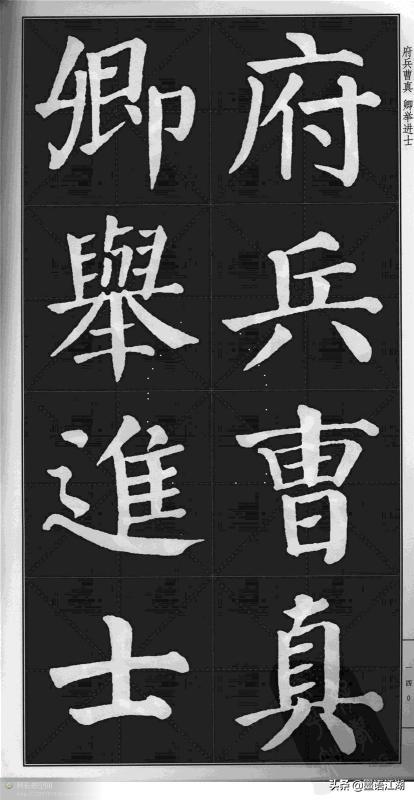 府兵曹真
卿舉進士
府兵曹真 卿举进士
一四0
头条 @墨语江湖